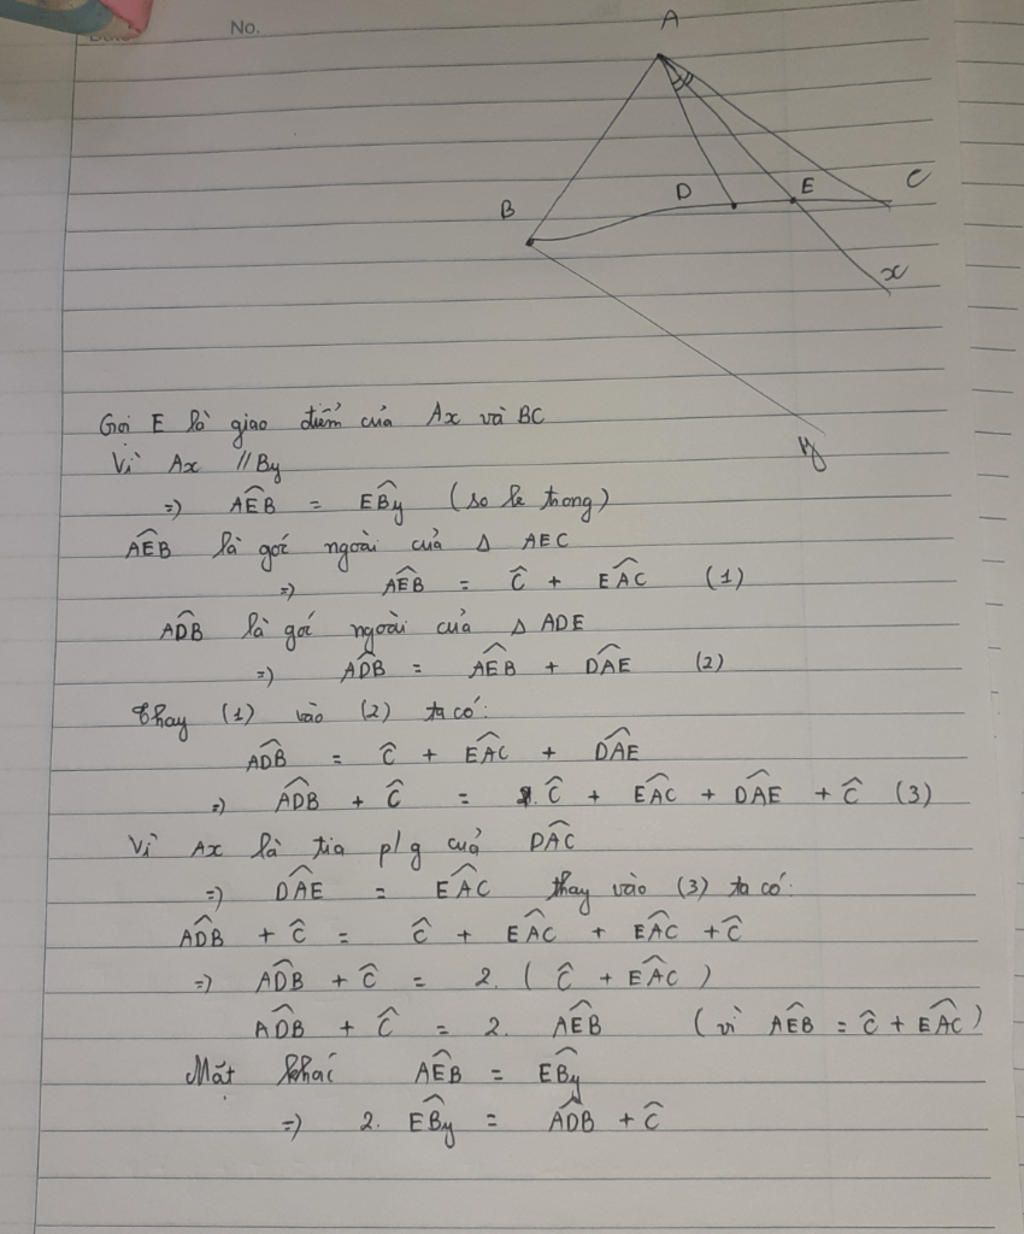 No.
A
B
D
E
C
x
y
Gọi E là giao điểm của Ax và BC
Vì Ax // By
=) \widehat{AEB} = \widehat{EBy} (so le trong)
\widehat{AEB} là góc ngoài của Δ AEC
=) \widehat{AEB} = \widehat{C} + \widehat{EAC} (1)
\widehat{ADB} là góc ngoài của Δ ADE
=) \widehat{ADB} = \widehat{AEB} + \widehat{DAE} (2)
Thay (1) vào (2) ta có:
\widehat{ADB} = \widehat{C} + \widehat{EAC} + \widehat{DAE}
=) \widehat{ADB} + \widehat{C} = \widehat{C} + \widehat{EAC} + \widehat{DAE} + \widehat{C} (3)
Vì Ax là tia p/g củả \widehat{DAC}
=) \widehat{DAE} = \widehat{EAC} thay vào (3) ta có:
\widehat{ADB} + \widehat{C} = \widehat{C} + \widehat{EAC} + \widehat{EAC} + \widehat{C}
=) \widehat{ADB} + \widehat{C} = 2. ( \widehat{C} + \widehat{EAC} )
\widehat{ADB} + \widehat{C} = 2. \widehat{AEB} (vì \widehat{AEB} = \widehat{C} + \widehat{EAC})
Mặt khác \widehat{AEB} = \widehat{EBy}
=) 2. \widehat{EBy} = \widehat{ADB} + \widehat{C}